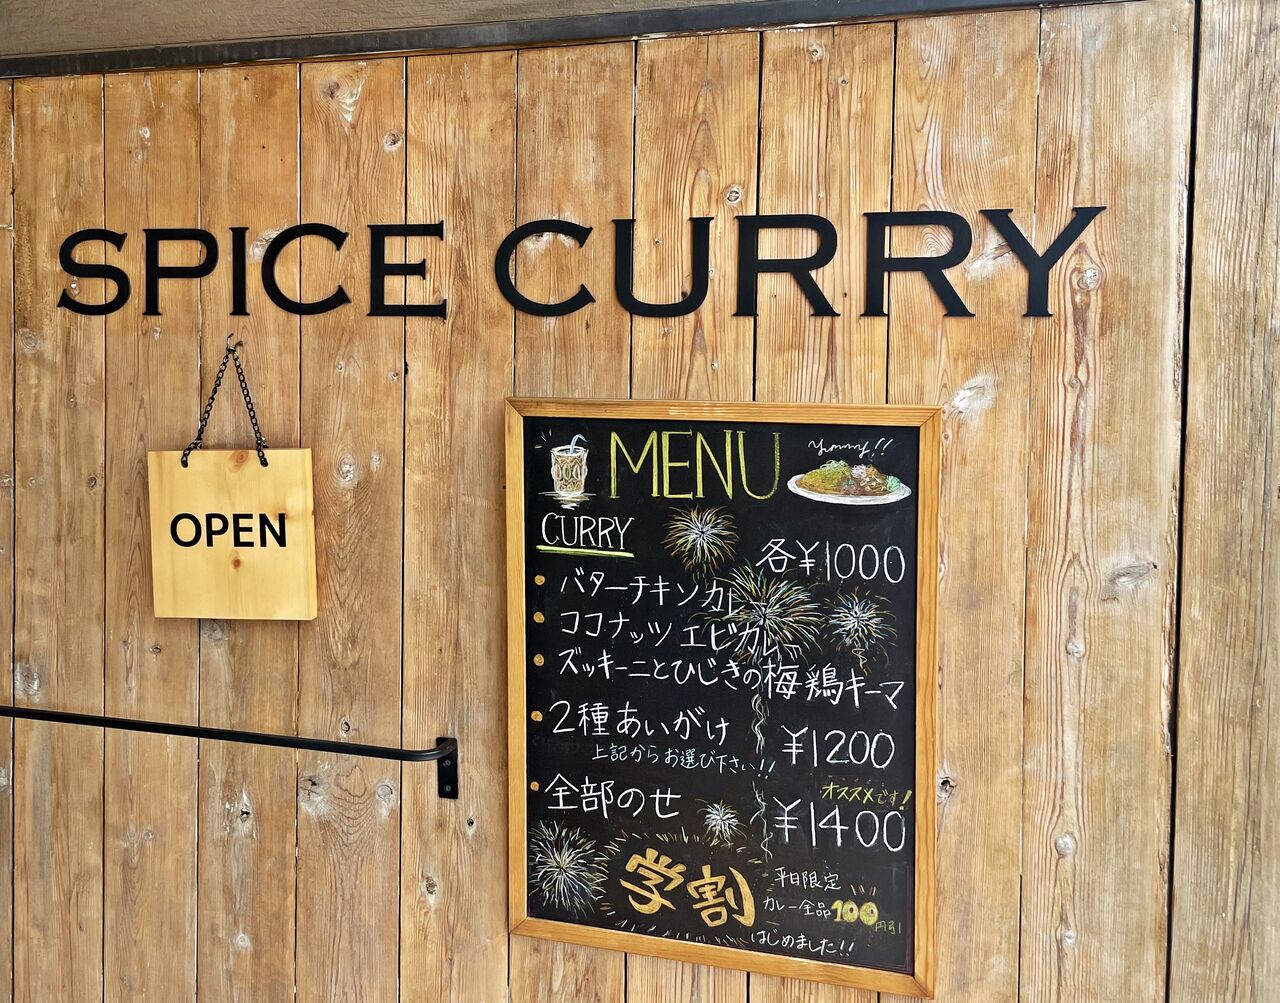 SPICE CURRY
OPEN
MENU
Yummy!!
CURRY
各¥1000
・バターチキンカレー
・ココナッツエビカレー
・ズッキーニとひじきの梅鶏キーマ
・2種あいがけ ¥1200
上記からお選び下さい!!
オススメです!
・全部のせ ¥1400
学割
平日限定
カレー全品100円引
はじめました!!